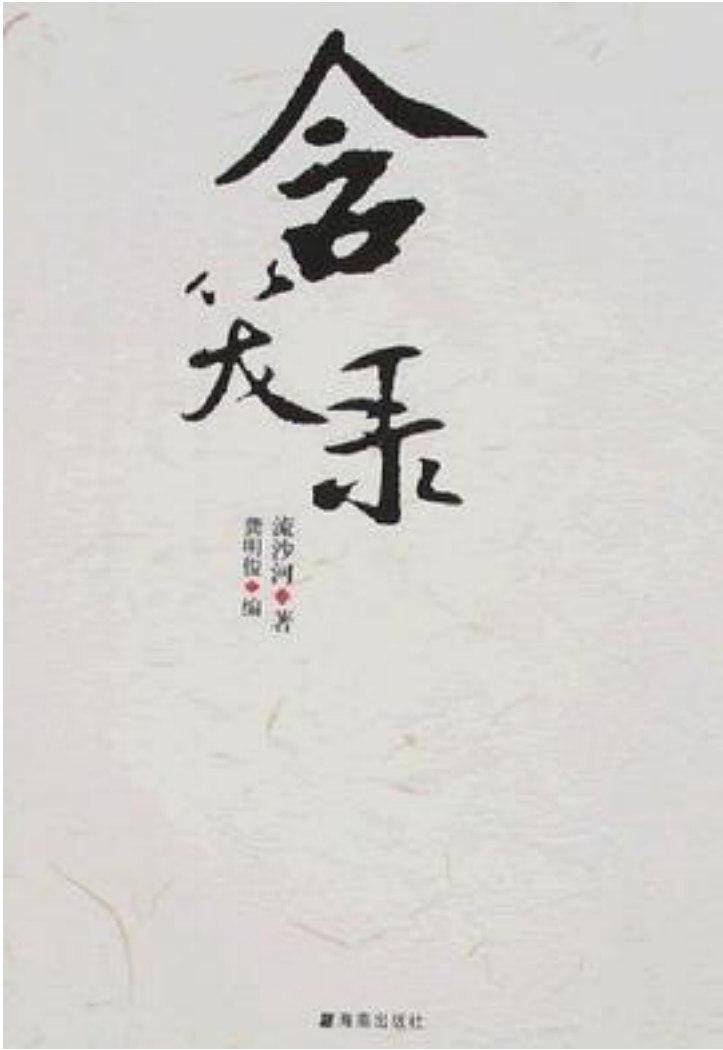 含笑录
流沙河 著
龚明俊 编
海南出版社